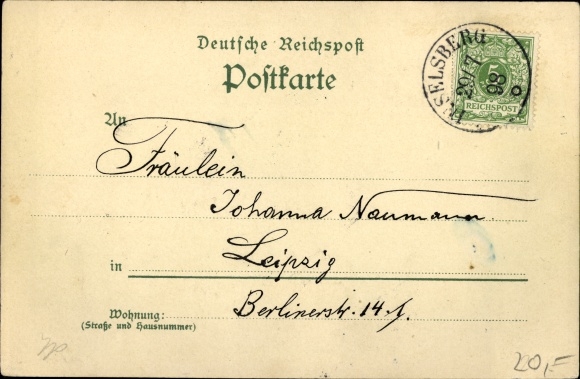 Deutsche Reichspost
Postkarte
INSELSBERG
20/7
98
5
REICHSPOST
An
Fräulein
Johanna Naumann
in Leipzig
Wohnung: Berlinerstr. 14 I.
(Straße und Hausnummer)
20,-